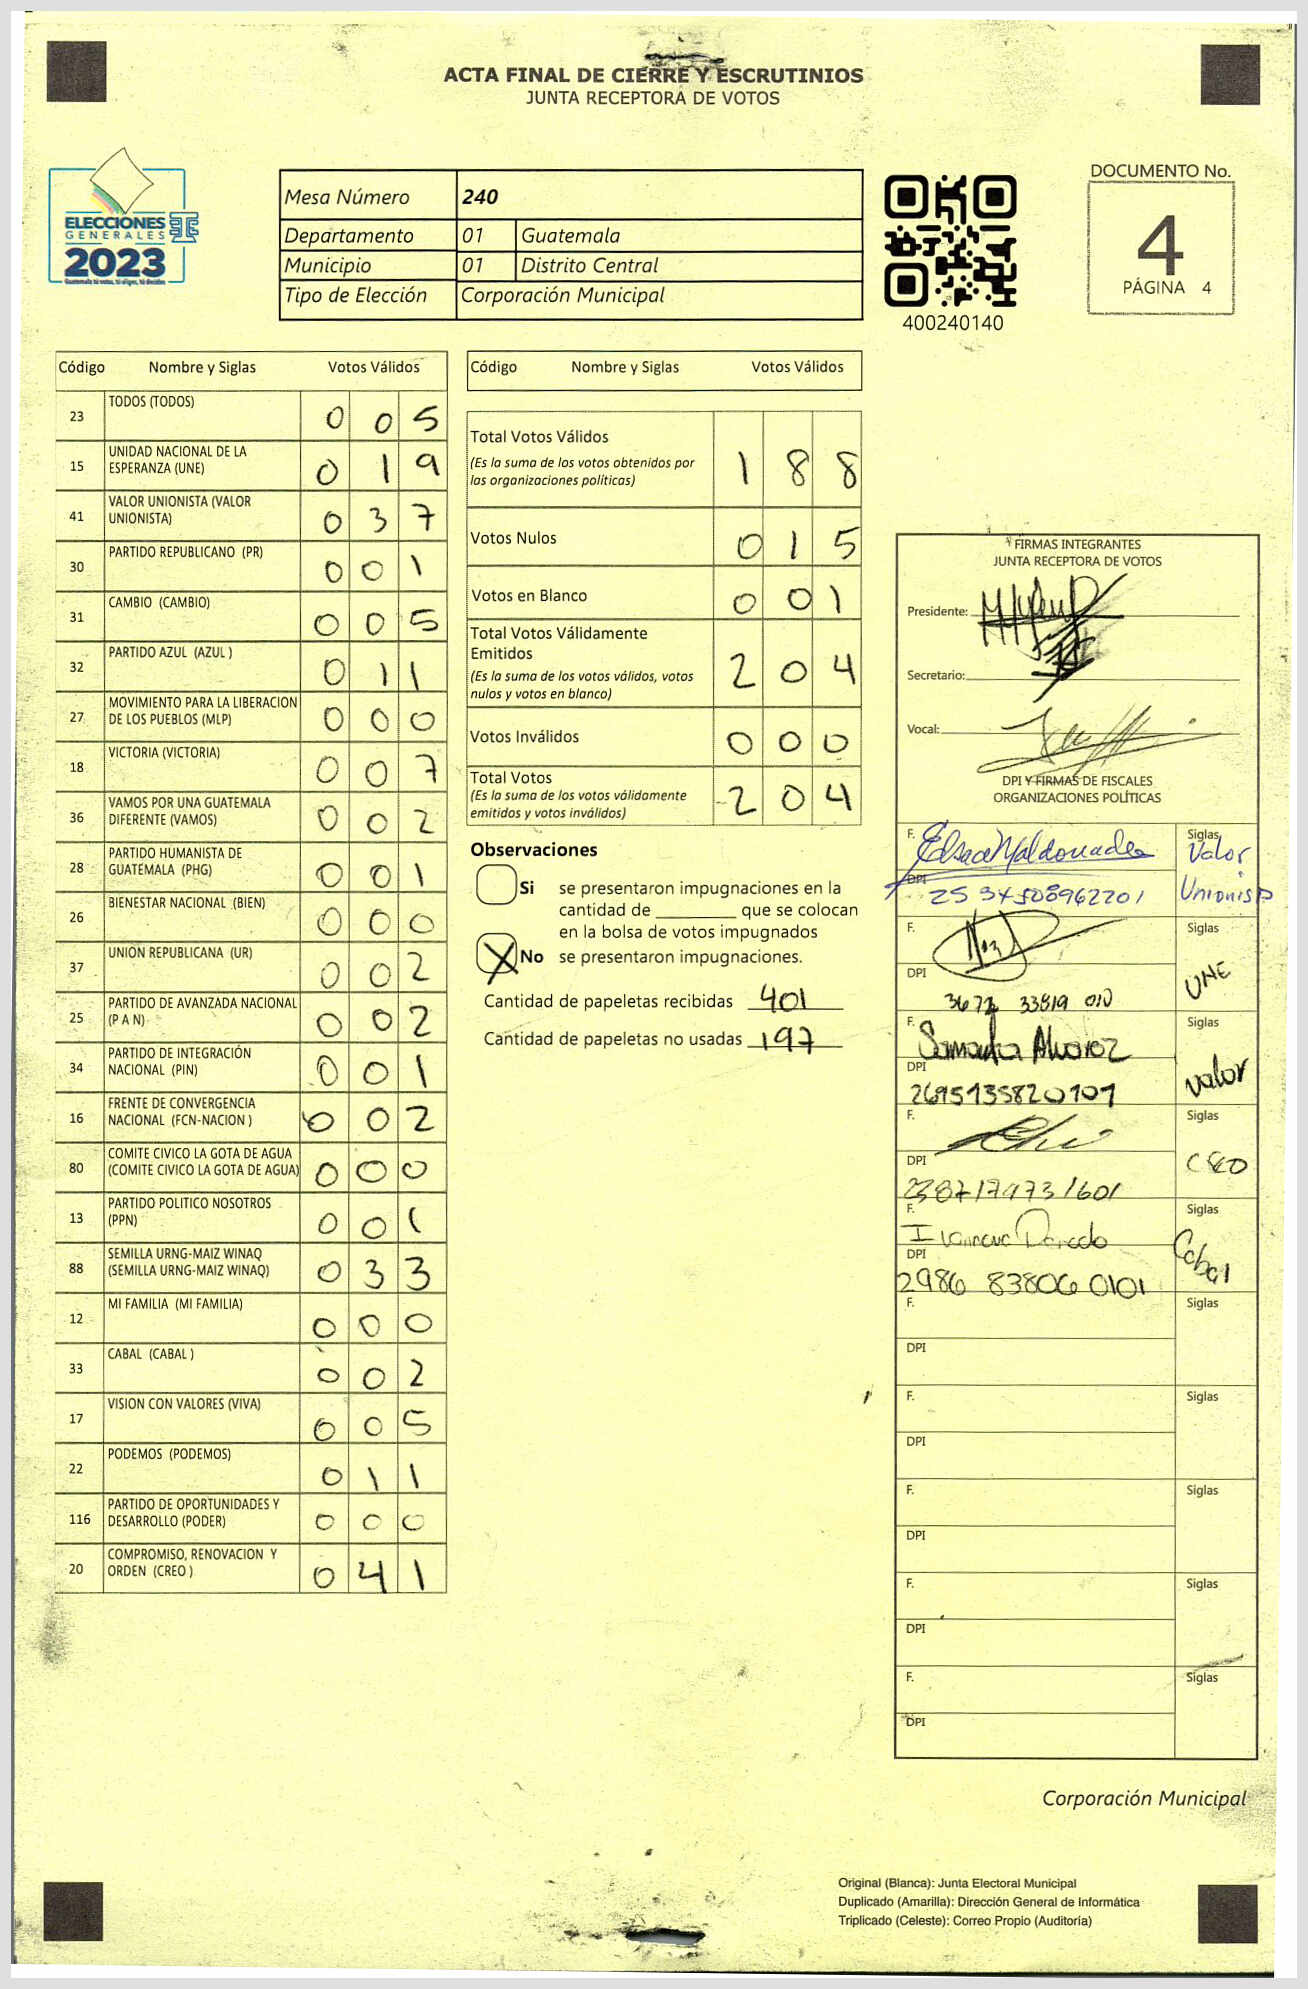 ACTA FINAL DE CIERRE Y ESCRUTINIOS
JUNTA RECEPTORA DE VOTOS
ELECCIONES
GENERALES
2023
Guatemala tú votas, tú eliges, tú decides
Mesa Número 240
Departamento 01 Guatemala
Municipio 01 Distrito Central
Tipo de Elección Corporación Municipal
400240140
DOCUMENTO No.
4
PÁGINA 4
Código Nombre y Siglas Votos Válidos
23 TODOS (TODOS) 0 0 5
15 UNIDAD NACIONAL DE LA
ESPERANZA (UNE) 0 1 9
41 VALOR UNIONISTA (VALOR
UNIONISTA) 0 3 7
30 PARTIDO REPUBLICANO (PR) 0 0 1
31 CAMBIO (CAMBIO) 0 0 5
32 PARTIDO AZUL (AZUL ) 0 1 1
27 MOVIMIENTO PARA LA LIBERACION
DE LOS PUEBLOS (MLP) 0 0 0
18 VICTORIA (VICTORIA) 0 0 7
36 VAMOS POR UNA GUATEMALA
DIFERENTE (VAMOS) 0 0 2
28 PARTIDO HUMANISTA DE
GUATEMALA (PHG) 0 0 1
26 BIENESTAR NACIONAL (BIEN) 0 0 0
37 UNION REPUBLICANA (UR) 0 0 2
25 PARTIDO DE AVANZADA NACIONAL
(P A N) 0 0 2
34 PARTIDO DE INTEGRACIÓN
NACIONAL (PIN) 0 0 1
16 FRENTE DE CONVERGENCIA
NACIONAL (FCN-NACION ) 0 0 2
80 COMITE CIVICO LA GOTA DE AGUA
(COMITE CIVICO LA GOTA DE AGUA) 0 0 0
13 PARTIDO POLITICO NOSOTROS
(PPN) 0 0 1
88 SEMILLA URNG-MAIZ WINAQ
(SEMILLA URNG-MAIZ WINAQ) 0 3 3
12 MI FAMILIA (MI FAMILIA) 0 0 0
33 CABAL (CABAL ) 0 0 2
17 VISION CON VALORES (VIVA) 0 0 5
22 PODEMOS (PODEMOS) 0 1 1
116 PARTIDO DE OPORTUNIDADES Y
DESARROLLO (PODER) 0 0 0
20 COMPROMISO, RENOVACION Y
ORDEN (CREO ) 0 4 1
Código Nombre y Siglas Votos Válidos
Total Votos Válidos
(Es la suma de los votos obtenidos por
las organizaciones políticas) 1 8 8
Votos Nulos 0 1 5
Votos en Blanco 0 0 1
Total Votos Válidamente
Emitidos
(Es la suma de los votos válidos, votos
nulos y votos en blanco) 2 0 4
Votos Inválidos 0 0 0
Total Votos
(Es la suma de los votos válidamente
emitidos y votos inválidos) 2 0 4
Observaciones
Si se presentaron impugnaciones en la
cantidad de ________ que se colocan
en la bolsa de votos impugnados
X No se presentaron impugnaciones.
Cantidad de papeletas recibidas 401
Cantidad de papeletas no usadas 197
FIRMAS INTEGRANTES
JUNTA RECEPTORA DE VOTOS
Presidente:
Secretario:
Vocal:
DPI Y FIRMAS DE FISCALES
ORGANIZACIONES POLÍTICAS
F. Maldonado Siglas Valor
DPI Unionista
F. Siglas
DPI 3672 33819 010 UNE
F. Samanta Alvarez Siglas
DPI 2695135820101 Valor
F. Siglas
DPI 2387179731601 CREO
F. Siglas
DPI 2986 83806 0101 Cabal
F. Siglas
DPI
F. Siglas
DPI
F. Siglas
DPI
F. Siglas
DPI
F. Siglas
DPI
Corporación Municipal
Original (Blanca): Junta Electoral Municipal
Duplicado (Amarilla): Dirección General de Informática
Triplicado (Celeste): Correo Propio (Auditoría)